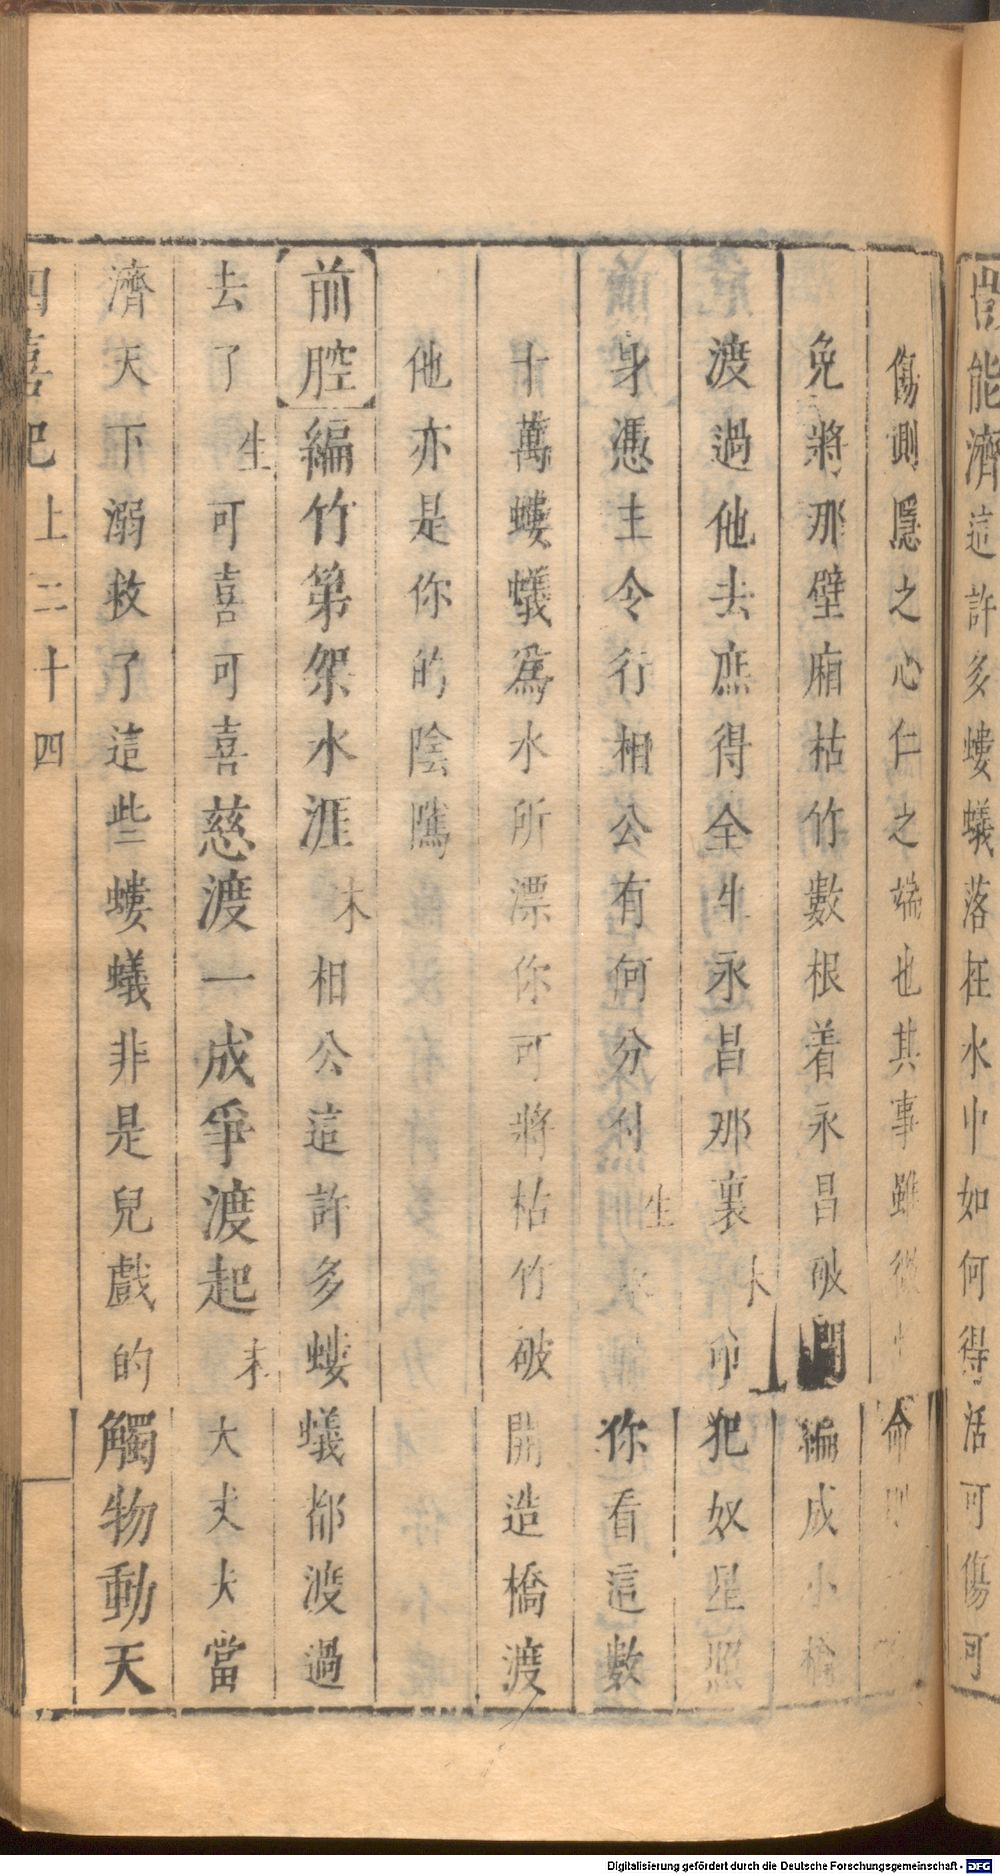 能濟這許多螻蟻落在水中如何得活可傷可
傷測隱之心仁之端也其事雖微
免將那壁廂枯竹數根着永昌破開編成小橋
渡過他去庶得全生永昌那裏末命犯奴星照
身憑主令行相公有何分付生你看這數
十萬螻蟻爲水所漂你可將枯竹破開造橋渡
他亦是你的陰隲
前腔編竹第架水涯末相公這許多螻蟻都渡過
去了生可喜可喜慈渡一成爭渡起末大丈夫當
濟天下溺救了這些螻蟻非是兒戲的觸物動天
四喜記上二十四
Digitalisierung gefördert durch die Deutsche Forschungsgemeinschaft - DFG